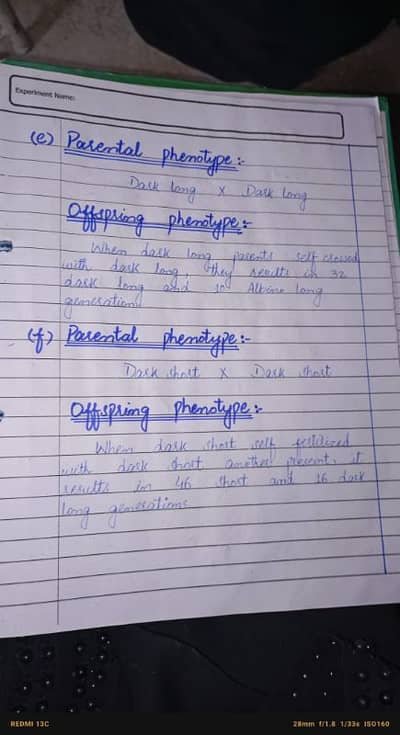 Experiment Name:
(e) Parental phenotype:-
Dark long x Dark long
Offspring phenotype:-
When dark long parents self crossed
with dark long, they results in 32
dark long and 10 Albino long
generations
(f) Parental phenotype:-
Dark short x Dark short
Offspring phenotype:-
When dark short self fertilized
with dark short another present, it
results in 46 short and 16 dark
long generations
REDMI 13C
28mm f/1.8 1/33s ISO160